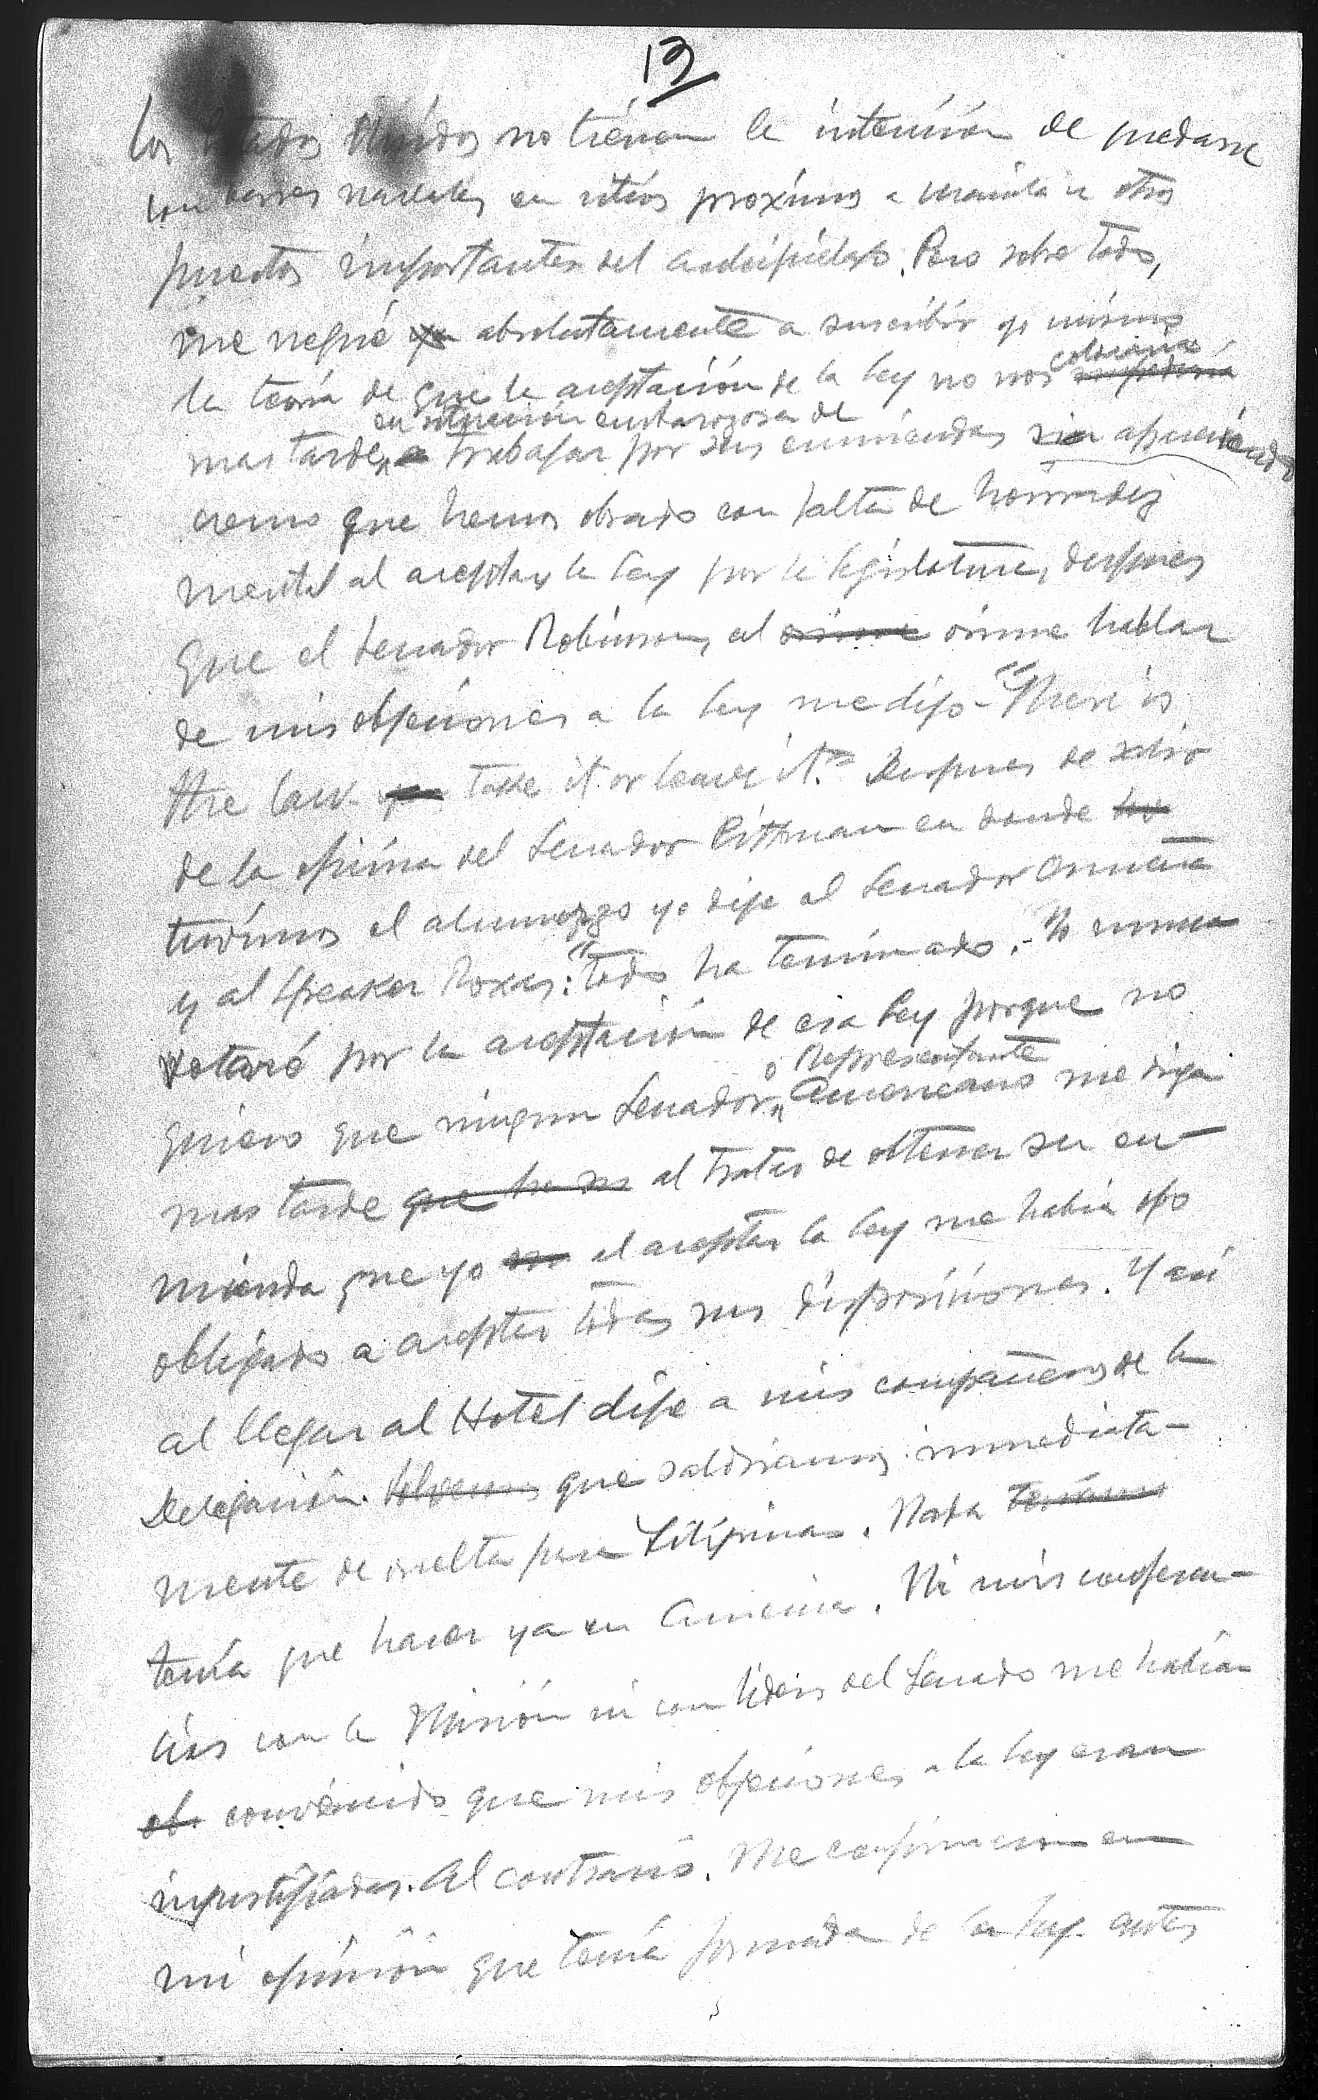 13
los Estados Unidos no tienen la intención de quedarse
con bases navales en sitios proximos a Manila u otros
puertos importantes del archipielago. Pero sobre todo,
me negué yo absolutamente a suscribir yo mismo
la teoria de que la aceptación de la ley no nos colocaria
en situación embarazosa de
mas tarde trabajar por sus enmiendas sin apareciendo
como que hemos obrado con falta de honradez
mental al aceptar la ley por la legislatura, despues
que el Senador Robinson, al oirme oirme hablar
de mis objeciones a la ley me dijo - "There is
the law - take it or leave it." Despues de salir
de la oficina del Senador Pittman en donde
tuvimos el almuerzo yo dije al Senador Osmeña
y al Speaker Roxas: "todo ha terminado. - Yo nunca
votaré por la aceptación de esa ley porque no
o Representante
quiero que ningun Senador Americano me diga
mas tarde que al tratar de obtener su en-
mienda que yo al aceptar la ley me habia
obligado a aceptar todas sus disposiciones. Y asi
al llegar al Hotel dije a mis compañeros de la
Delegación que saldriamos inmediata-
mente de vuelta para Filipinas. Nada teniamos
tenia que hacer ya en America. Ni mis conferen-
cias con la Misión ni con lideres del Senado me habian
ob. convencido que mis objeciones a la ley eran
injustificadas. Al contrario. Me confirmaron en
mi opinión que tenia formada de la ley antes